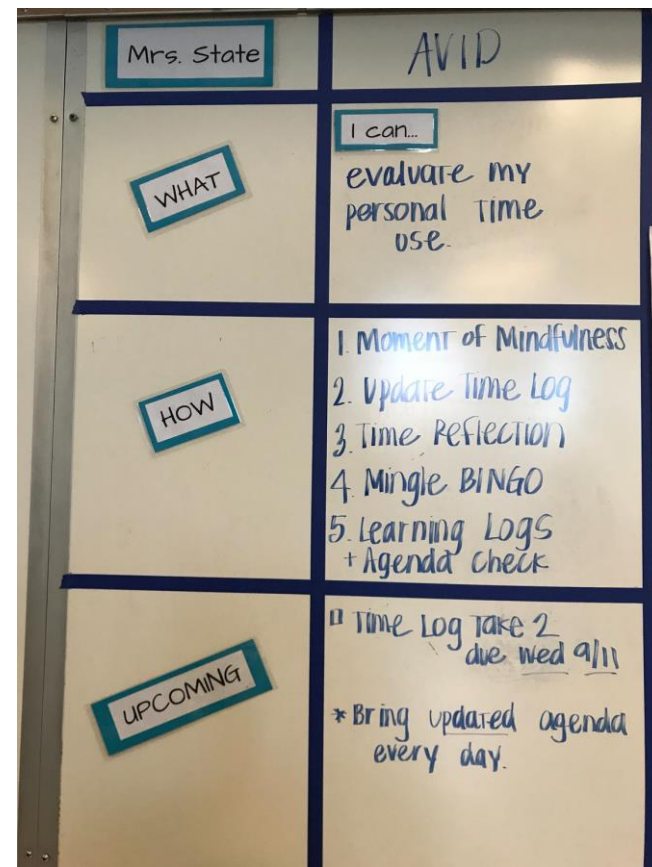 Mrs. State
AVID
WHAT
I can...
evaluate my
personal Time
use.
HOW
1. Moment of Mindfulness
2. Update Time Log
3. Time Reflection
4. Mingle BINGO
5. Learning Logs
+ Agenda check
UPCOMING
Time Log Take 2
due wed 9/11
* Bring updated agenda
every day.